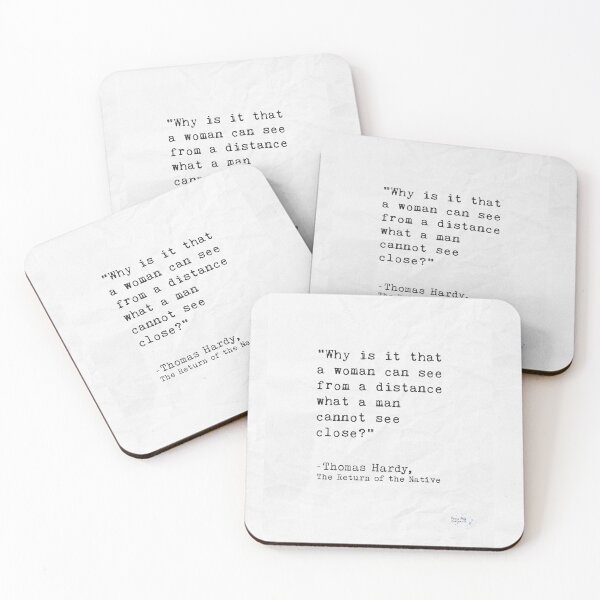 "Why is it that
a woman can see
from a distance
what a man
"Why is it that
a woman can see
from a distance
what a man
cannot see
close?"
-Thomas Hardy,
"Why is it that
a woman can see
from a distance
what a man
cannot see
close?"
-Thomas Hardy,
The Return of the Nati
"Why is it that
a woman can see
from a distance
what a man
cannot see
close?"
-Thomas Hardy,
The Return of the Native